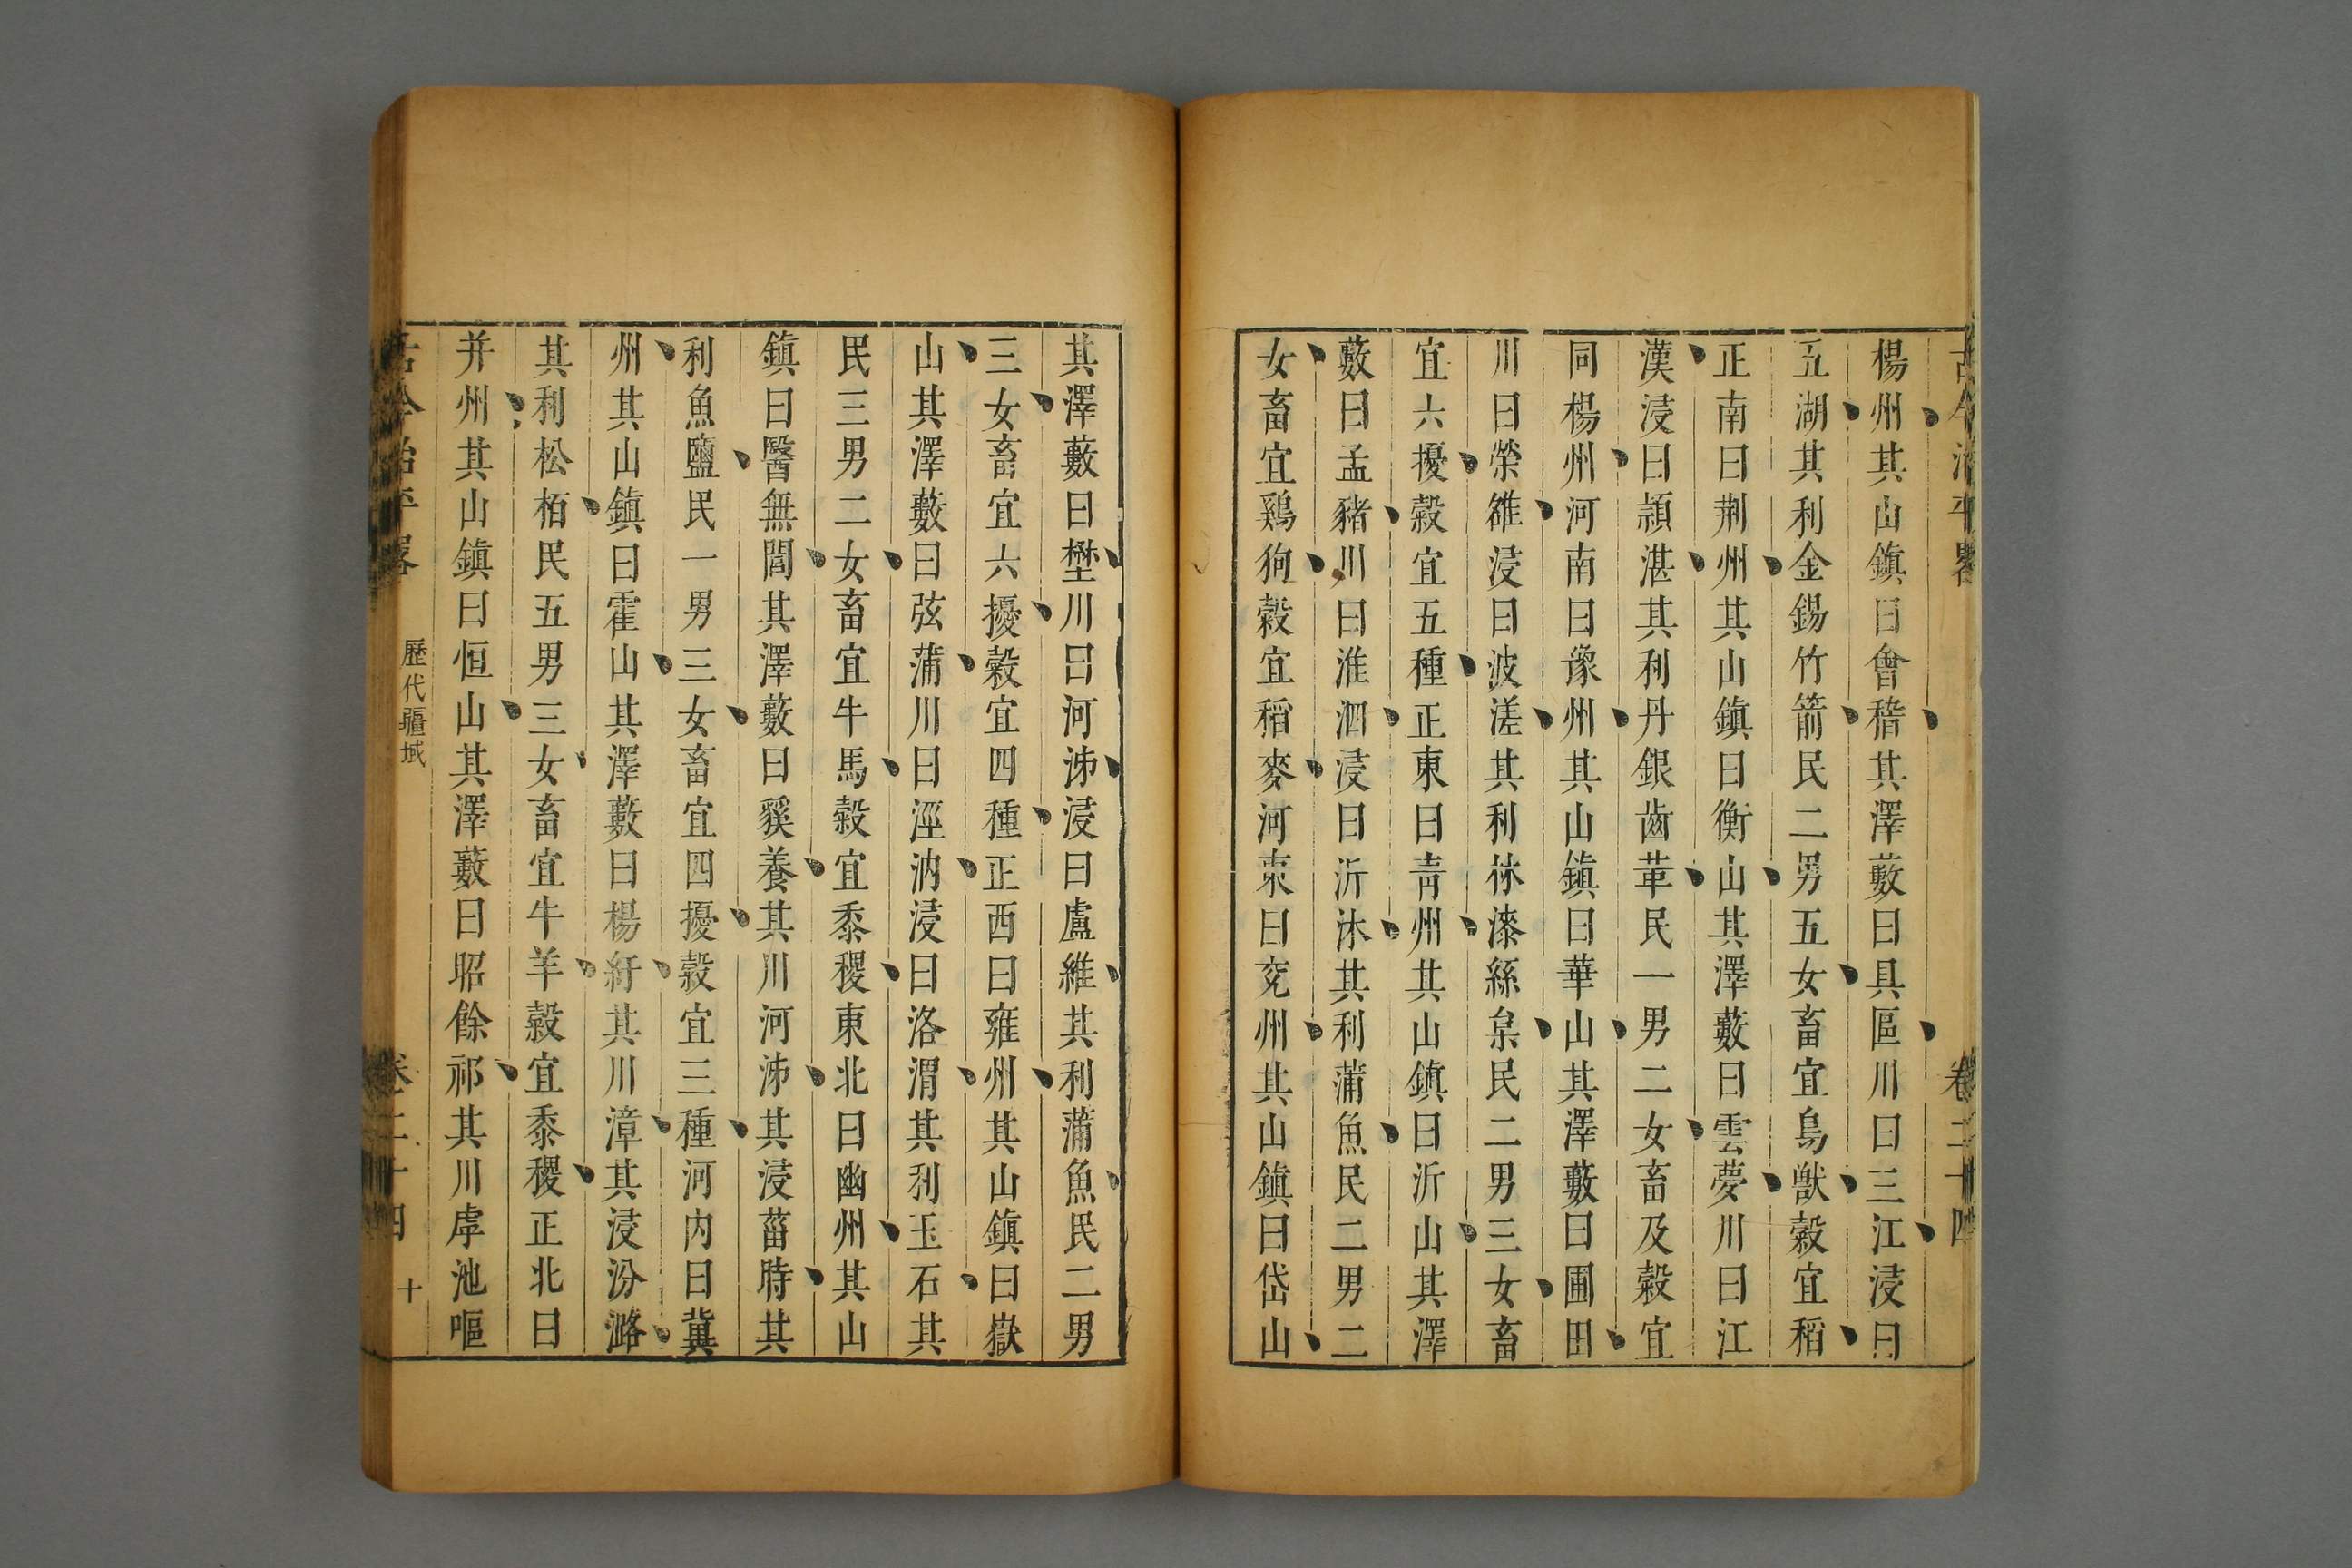 古今治平畧 卷二十四
楊州其山鎮曰會稽其澤藪曰具區川曰三江浸曰
五湖其利金錫竹箭民二男五女畜宜鳥獸穀宜稻
正南曰荆州其山鎮曰衡山其澤藪曰雲夢川曰江
漢浸曰頴湛其利丹銀齒革民一男二女畜及穀宜
同楊州河南曰豫州其山鎮曰華山其澤藪曰圃田
川曰榮雒浸曰波溠其利林漆絲枲民二男三女畜
宜六擾穀宜五種正東曰青州其山鎮曰沂山其澤
藪曰孟豬川曰淮泗浸曰沂沭其利蒲魚民二男二
女畜宜鷄狗穀宜稻麥河東曰兗州其山鎮曰岱山
其澤藪曰埜川曰河泲浸曰盧維其利蒲魚民二男
三女畜宜六擾穀宜四種正西曰雍州其山鎮曰嶽
山其澤藪曰弦蒲川曰涇汭浸曰洛渭其利玉石其
民三男二女畜宜牛馬穀宜黍稷東北曰幽州其山
鎮曰醫無閭其澤藪曰貕養其川河泲其浸菑時其
利魚鹽民一男三女畜宜四擾穀宜三種河内曰冀
州其山鎮曰霍山其澤藪曰楊紆其川漳其浸汾潞
其利松栢民五男三女畜宜牛羊穀宜黍稷正北曰
并州其山鎮曰恒山其澤藪曰昭餘祁其川虖池嘔
古今治平畧 歷代疆域 卷二十四 十